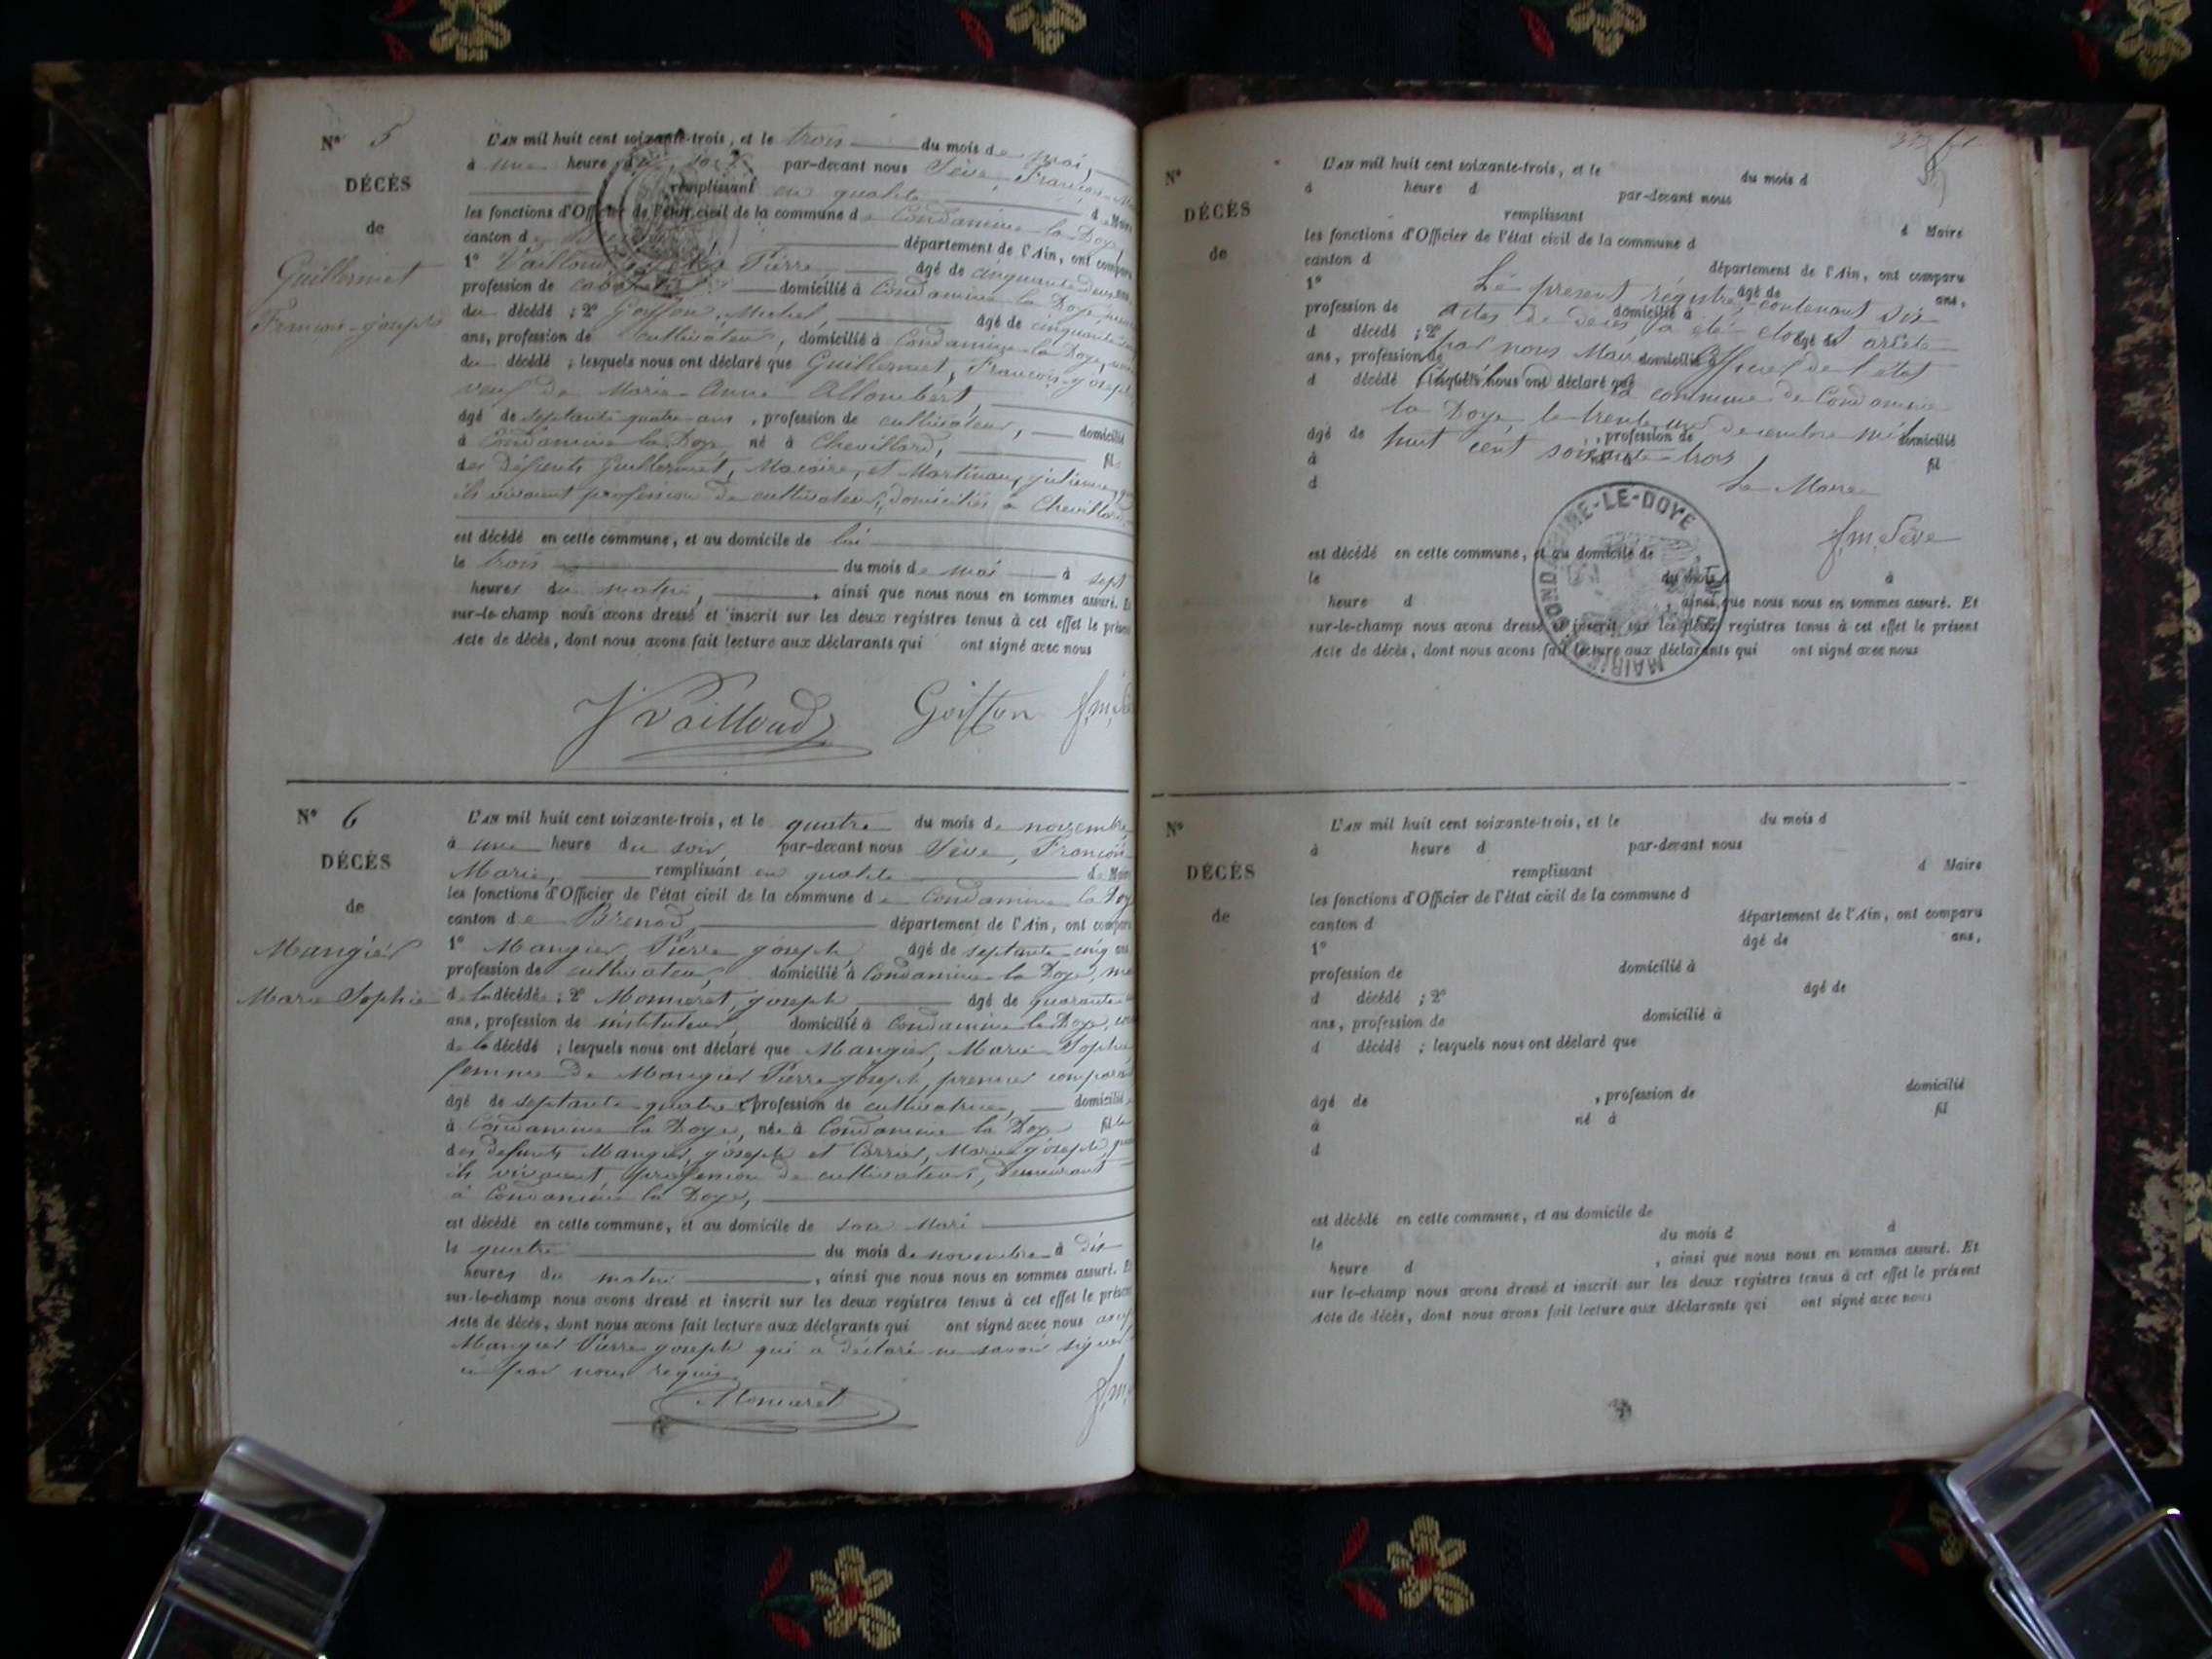 N° 5
DÉCÈS
de
Guillermet
François-joseph
L'AN mil huit cent soixante-trois, et le trois du mois de mai,
à une heure du soir par-devant nous Sève, François-
remplissant en qualité de Maire
les fonctions d'Officier de l'état civil de la commune de Condamine la Doye,
canton de département de l'Ain, ont comparu
1° Pierre âgé de cinquante deux ans,
profession de domicilié à Condamine la Doye,
du décédé ; 2° Goiffon, Michel, âgé de cinquante
ans, profession de cultivateur, domicilié à Condamine la Doye,
du décédé ; lesquels nous ont déclaré que Guillermet, François-joseph
veuf de Marie-Anne Allombert,
âgé de septante quatre ans, profession de cultivateur, domicilié
à Condamine la Doye né à Chevillard, fils
des défunts Guillermet, Macaire, et Martinand, julienne,
ils vivaient profession de cultivateurs, domiciliés à Chevillard
est décédé en cette commune, et au domicile de lui
le trois du mois de mai à sept
heures du matin, , ainsi que nous nous en sommes assuré. Et
sur-le-champ nous avons dressé et inscrit sur les deux registres tenus à cet effet le présent
Acte de décès, dont nous avons fait lecture aux déclarants qui ont signé avec nous
J Vailloud Goiffon
N° 6
DÉCÈS
de
Mangier
Marie Sophie
L'AN mil huit cent soixante-trois, et le quatre du mois de novembre
à une heure du soir, par-devant nous Sève, François
Marie, remplissant en qualité de Maire
les fonctions d'Officier de l'état civil de la commune de Condamine la Doye
canton de Brenod département de l'Ain, ont comparu
1° Mangier Pierre joseph, âgé de septante cinq ans
profession de cultivateur, domicilié à Condamine la Doye,
de la décédée ; 2° Monneret, joseph, âgé de quarante
ans, profession de instituteur, domicilié à Condamine la Doye,
de la décédé ; lesquels nous ont déclaré que Mangier, Marie Sophie
femme de Mangier Pierre joseph, premier
âgé de septante quatre profession de cultivatrice, domicilié
à Condamine la Doye, née à Condamine la Doye fille
des défunts Mangier, joseph et Carrier, Marie joseph,
ils vivaient, profession de cultivateurs, demeurant
à Condamine la Doye,
est décédé en cette commune, et au domicile de son Mari
le quatre du mois de novembre à dix
heures du matin , ainsi que nous nous en sommes assuré. Et
sur-le-champ nous avons dressé et inscrit sur les deux registres tenus à cet effet le présent
Acte de décès, dont nous avons fait lecture aux déclarants qui ont signé avec nous
Mangier Pierre joseph qui a déclaré ne savoir signer
ce par nous requis
Monneret
N°
DÉCÈS
de
L'AN mil huit cent soixante-trois, et le du mois d
à heure d par-devant nous
remplissant d Maire
les fonctions d'Officier de l'état civil de la commune d
canton d département de l'Ain, ont comparu
1° âgé de ans,
profession de domicilié à
d décédé ; 2° âgé de
ans, profession de domicilié à
d décédé ; lesquels nous ont déclaré que
âgé de , profession de domicilié
à né à fil
d
Le présent registre, contenant six
actes de décès, a été clos et arrêté
par nous Maire Officier de l'état
civil de la commune de Condamine
la Doye, le trente un décembre mil
huit cent soixante-trois
Le Maire
f.m. Sève
MAIRIE DE CONDAMINE-LE-DOYE
est décédé en cette commune, et au domicile de
le du mois d à
heure d , ainsi que nous nous en sommes assuré. Et
sur-le-champ nous avons dressé et inscrit sur les deux registres tenus à cet effet le présent
Acte de décès, dont nous avons fait lecture aux déclarants qui ont signé avec nous
N°
DÉCÈS
de
L'AN mil huit cent soixante-trois, et le du mois d
à heure d par-devant nous
remplissant d Maire
les fonctions d'Officier de l'état civil de la commune d
canton d département de l'Ain, ont comparu
1° âgé de ans,
profession de domicilié à
d décédé ; 2° âgé de
ans, profession de domicilié à
d décédé ; lesquels nous ont déclaré que
âgé de , profession de domicilié
à né à fil
d
est décédé en cette commune, et au domicile de
le du mois d à
heure d , ainsi que nous nous en sommes assuré. Et
sur-le-champ nous avons dressé et inscrit sur les deux registres tenus à cet effet le présent
Acte de décès, dont nous avons fait lecture aux déclarants qui ont signé avec nous